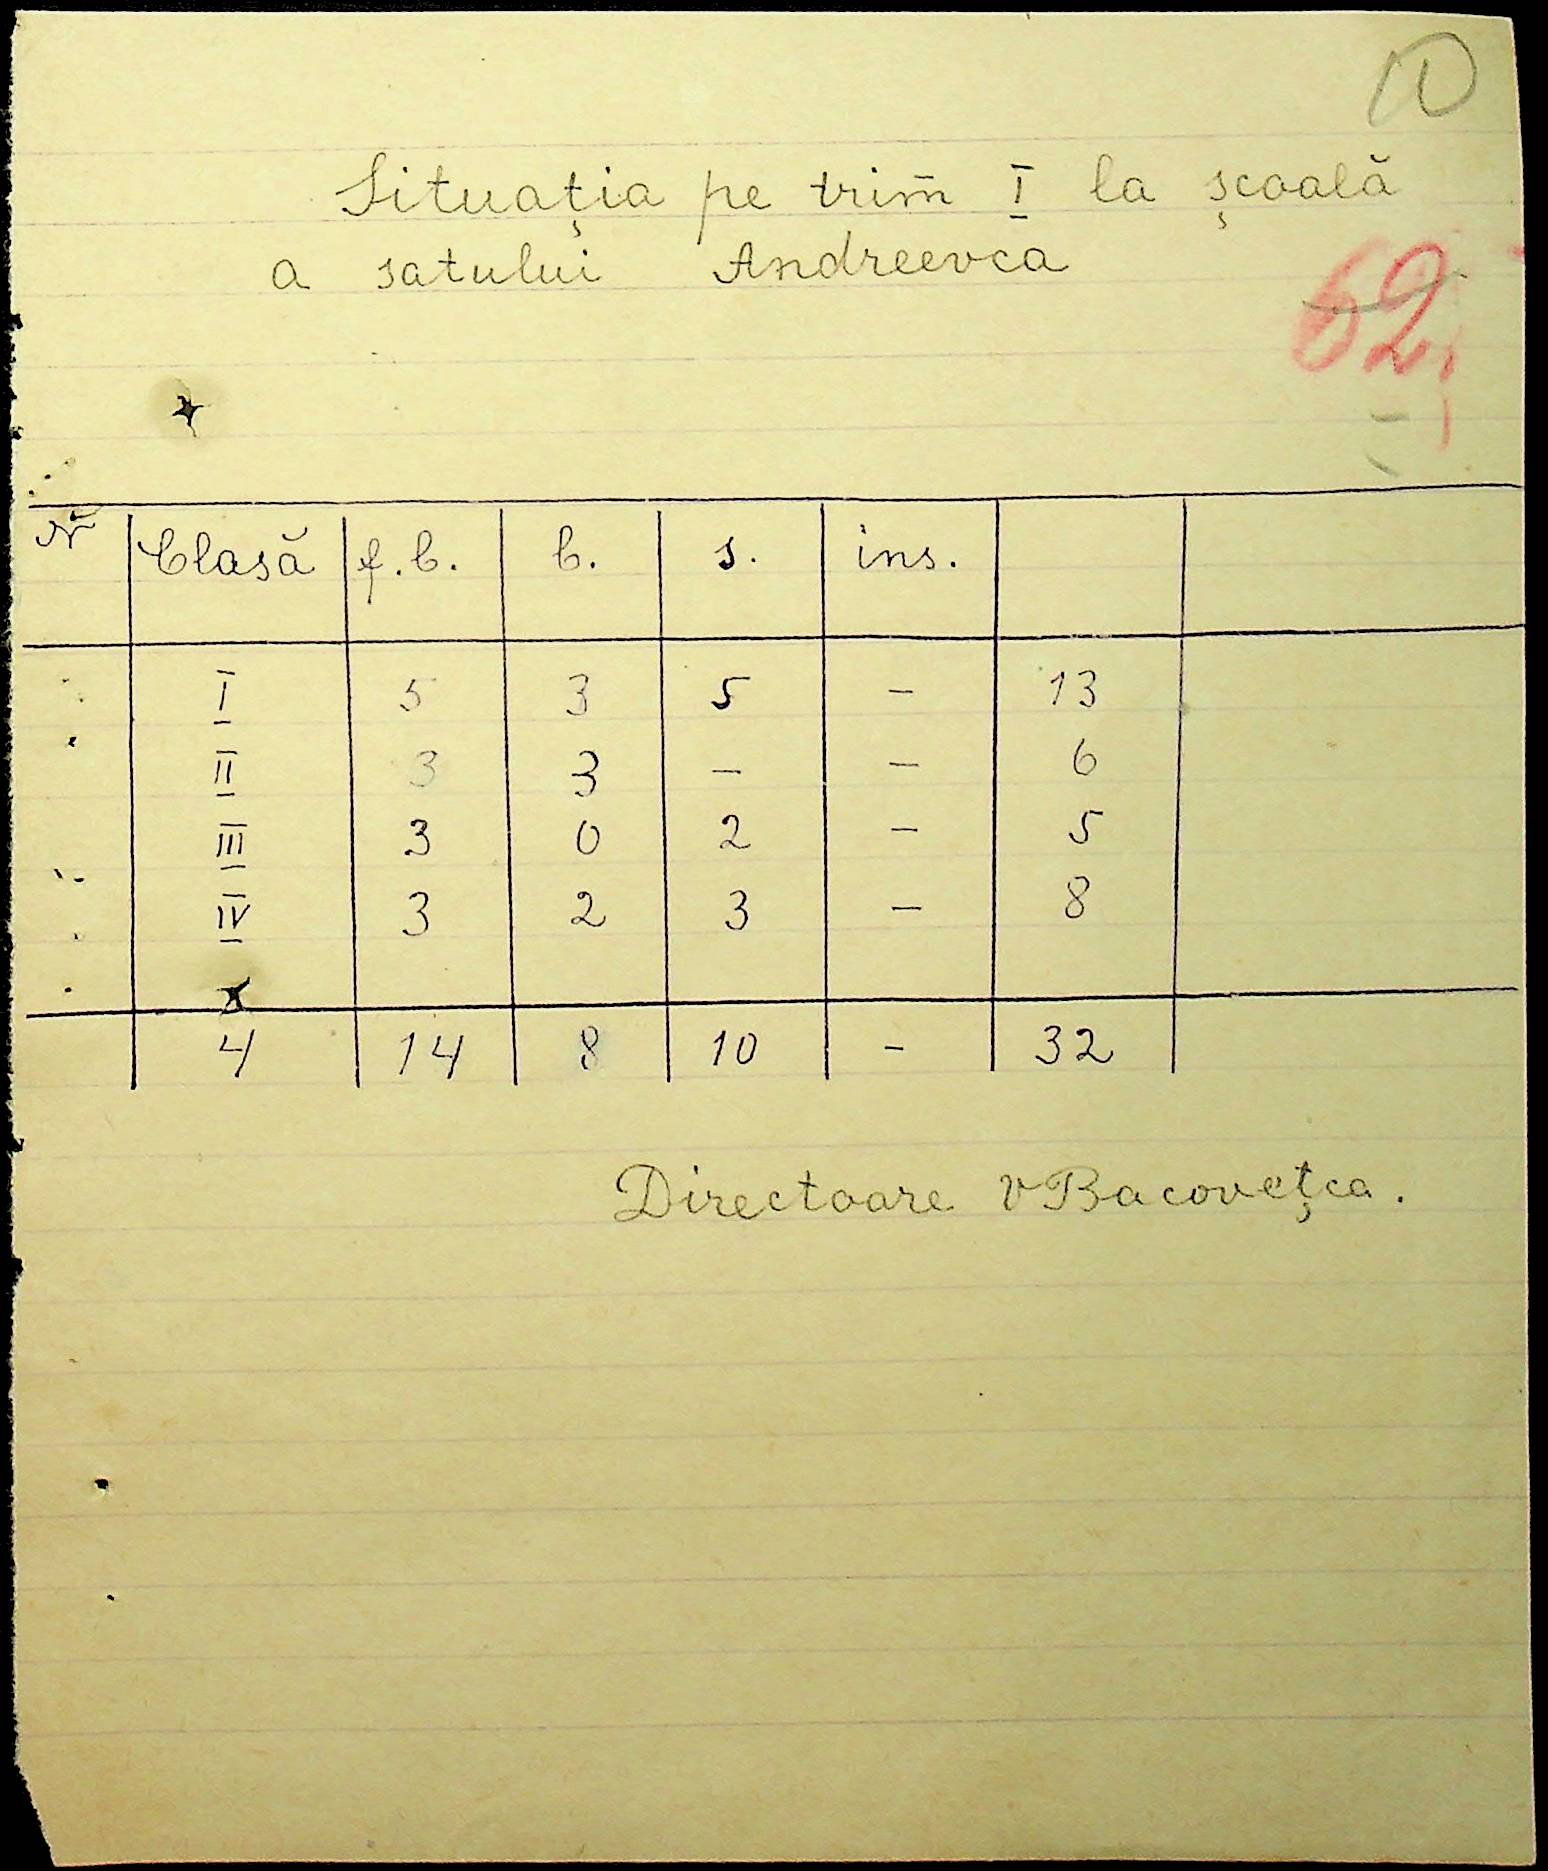 Situația pe trim I la școală
a satului Andreevca
62
Nr Clasă f.b. b. s. ins.
I 5 3 5 - 13
II 3 3 - - 6
III 3 0 2 - 5
IV 3 2 3 - 8
4 14 8 10 - 32
Directoare V Bacovețca.